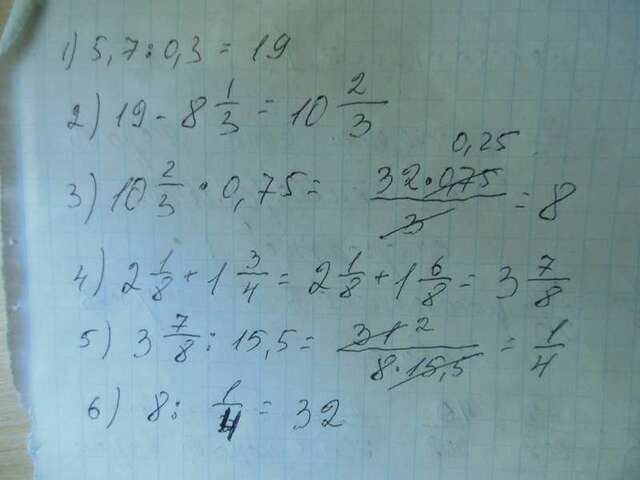 1) 5,7 : 0,3 = 19
2) 19 - 8 1/3 = 10 2/3
0,25
3) 10 2/3 · 0,75 = 32·0,75/3 = 8
4) 2 1/8 + 1 3/4 = 2 1/8 + 1 6/8 = 3 7/8
5) 3 7/8 : 15,5 = 31 2/8·15,5 = 1/4
6) 8 : 1/4 = 32